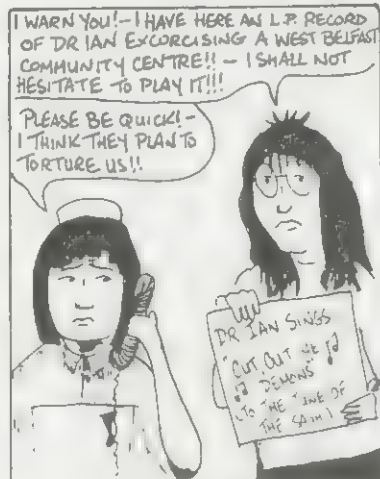 I WARN YOU! - I HAVE HERE AN L.P. RECORD
OF DR IAN EXCORCISING A WEST BELFAST
COMMUNITY CENTRE!! - I SHALL NOT
HESITATE TO PLAY IT!!!
PLEASE BE QUICK! -
I THINK THEY PLAN TO
TORTURE US!!
DR IAN SINGS
"CUT OUT
DEMONS
TO THE TUNE OF
THE SASH"